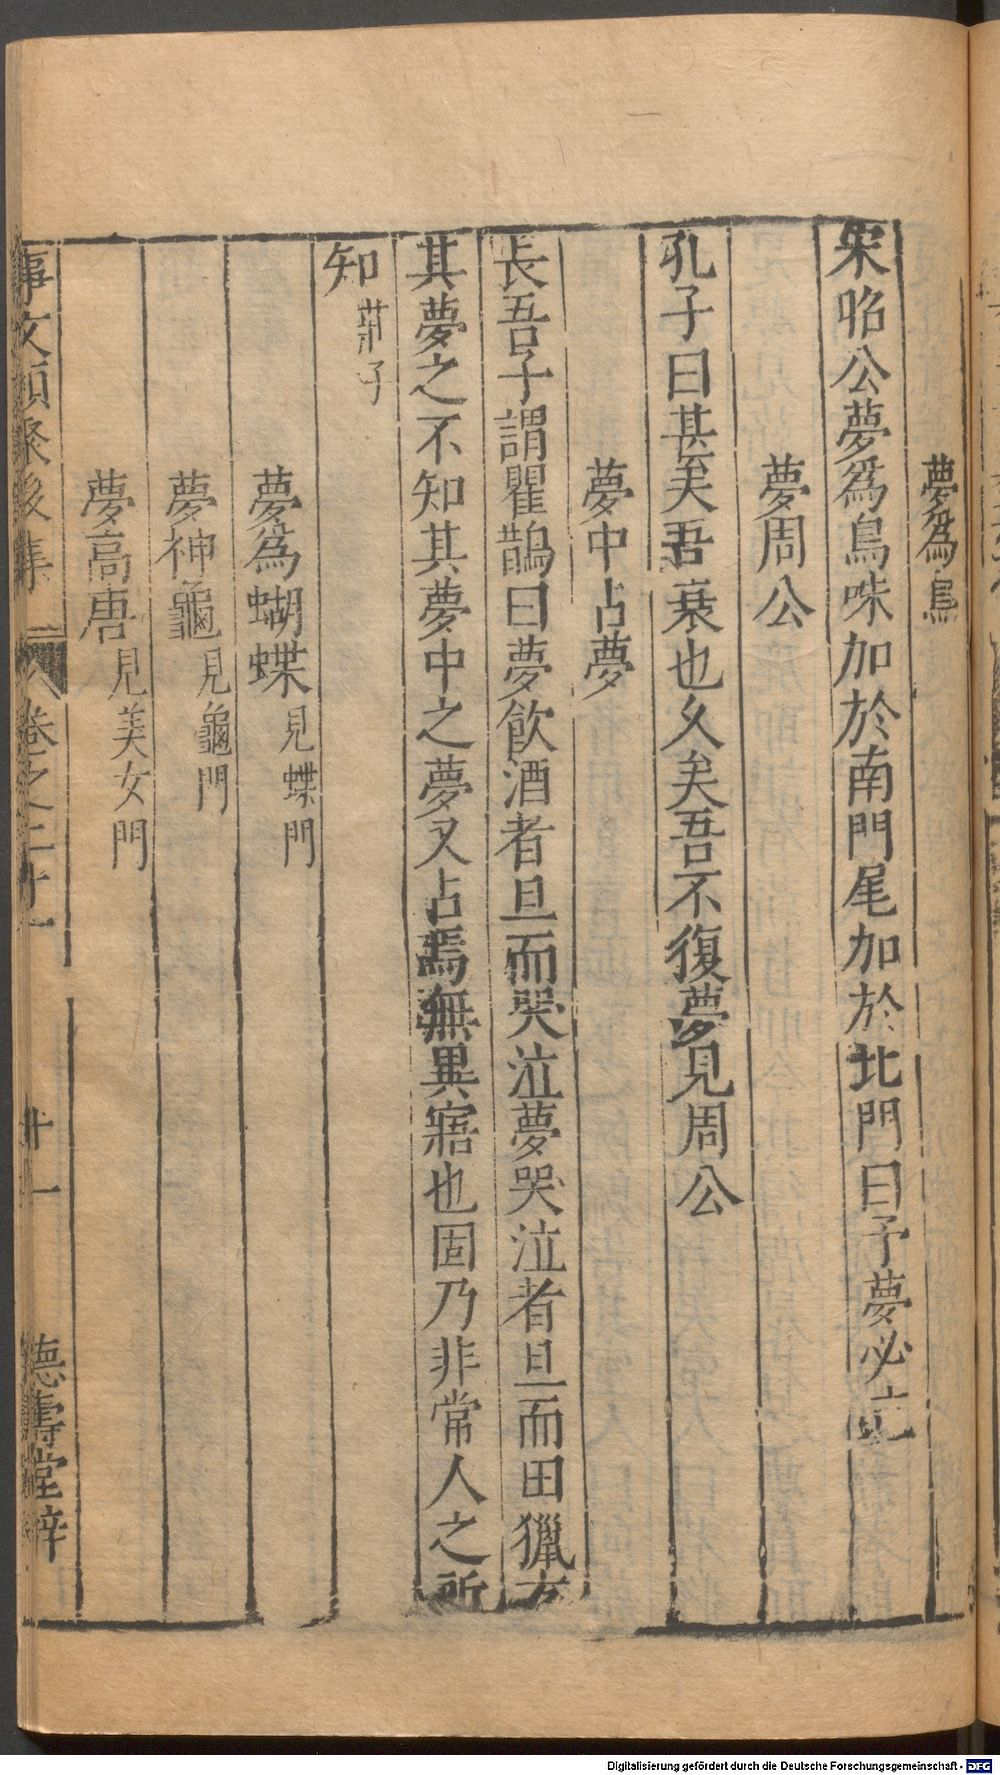 夢爲鳥
宋昭公夢爲鳥咮加於南門尾加於北門曰予夢必
夢周公
孔子曰甚矣吾衰也久矣吾不復夢見周公
夢中占夢
長吾子謂瞿鵲曰夢飲酒者旦而哭泣夢哭泣者旦而田獵方
其夢之不知其夢中之夢又占焉無異寤也固乃非常人之所
知莊子
夢爲蝴蝶見蝶門
夢神龜見龜門
夢高唐見美女門
事文類聚後集 卷之二十一 廿一 德壽堂梓
Digitalisierung gefördert durch die Deutsche Forschungsgemeinschaft - DFG